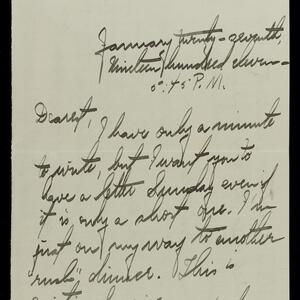 January twenty-seventh,
Nineteen hundred eleven-
5:45 P.M.
Dearest, I have only a minute
to write, but I want you to
have a letter Sunday even if
it is only a short one. I'm
just on my way to another
"rush" dinner. This is